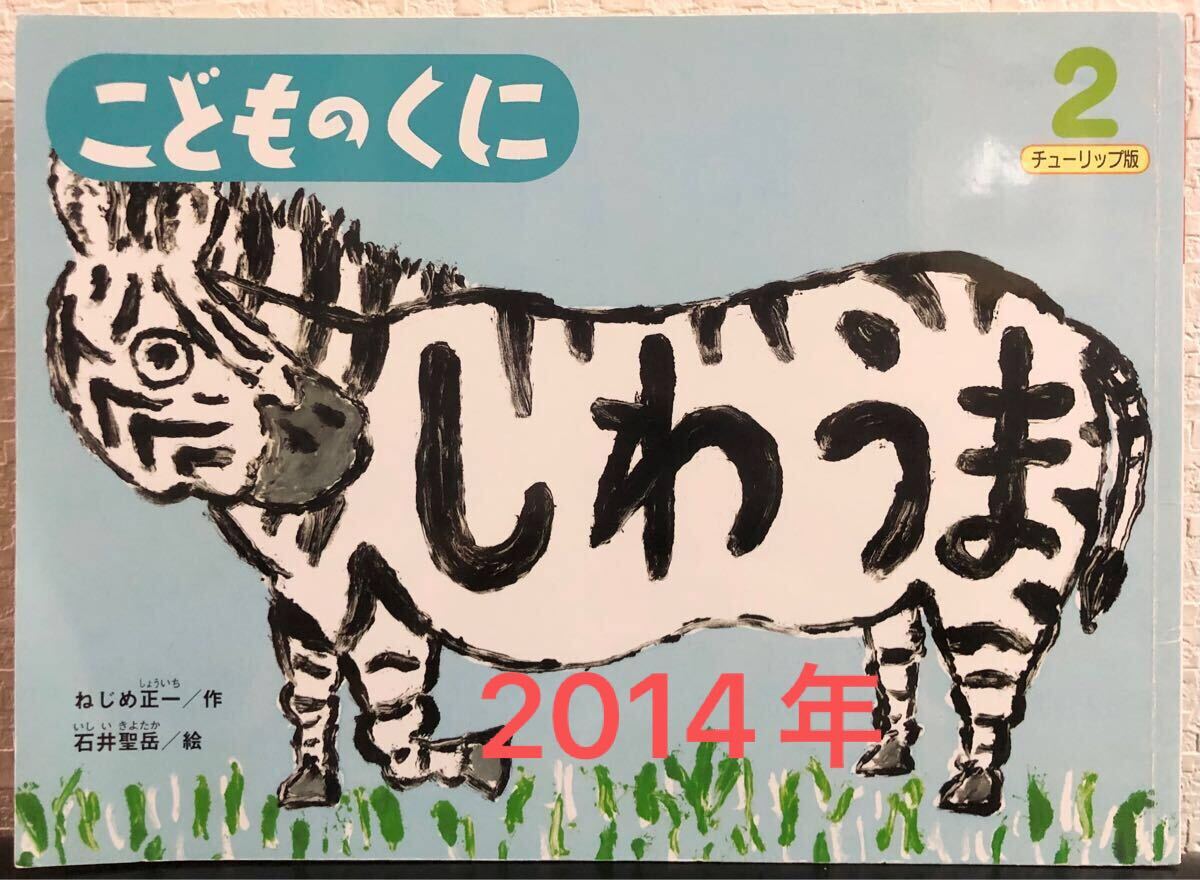 こどものくに
2
チューリップ版
しわうま
しょういち
ねじめ正一／作
いし い きよたか
石井聖岳／絵
2014年